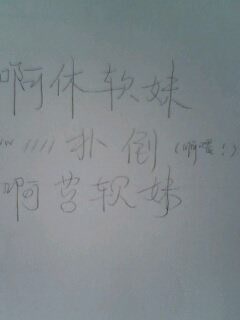 啊休软妹
""////扑倒(啊喂!)
啊营软妹